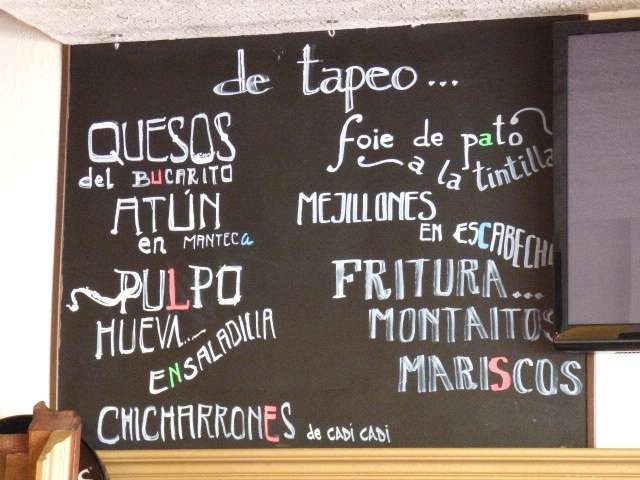 de tapeo...
QUESOS
del BUCARITO
ATÚN
en MANTECA
PULPO
HUEVA...
ENSALADILLA
CHICHARRONES de CADI CADI
foie de pato
a la tintilla
MEJILLONES
EN ESCABECHE
FRITURA...
MONTAITOS
MARISCOS